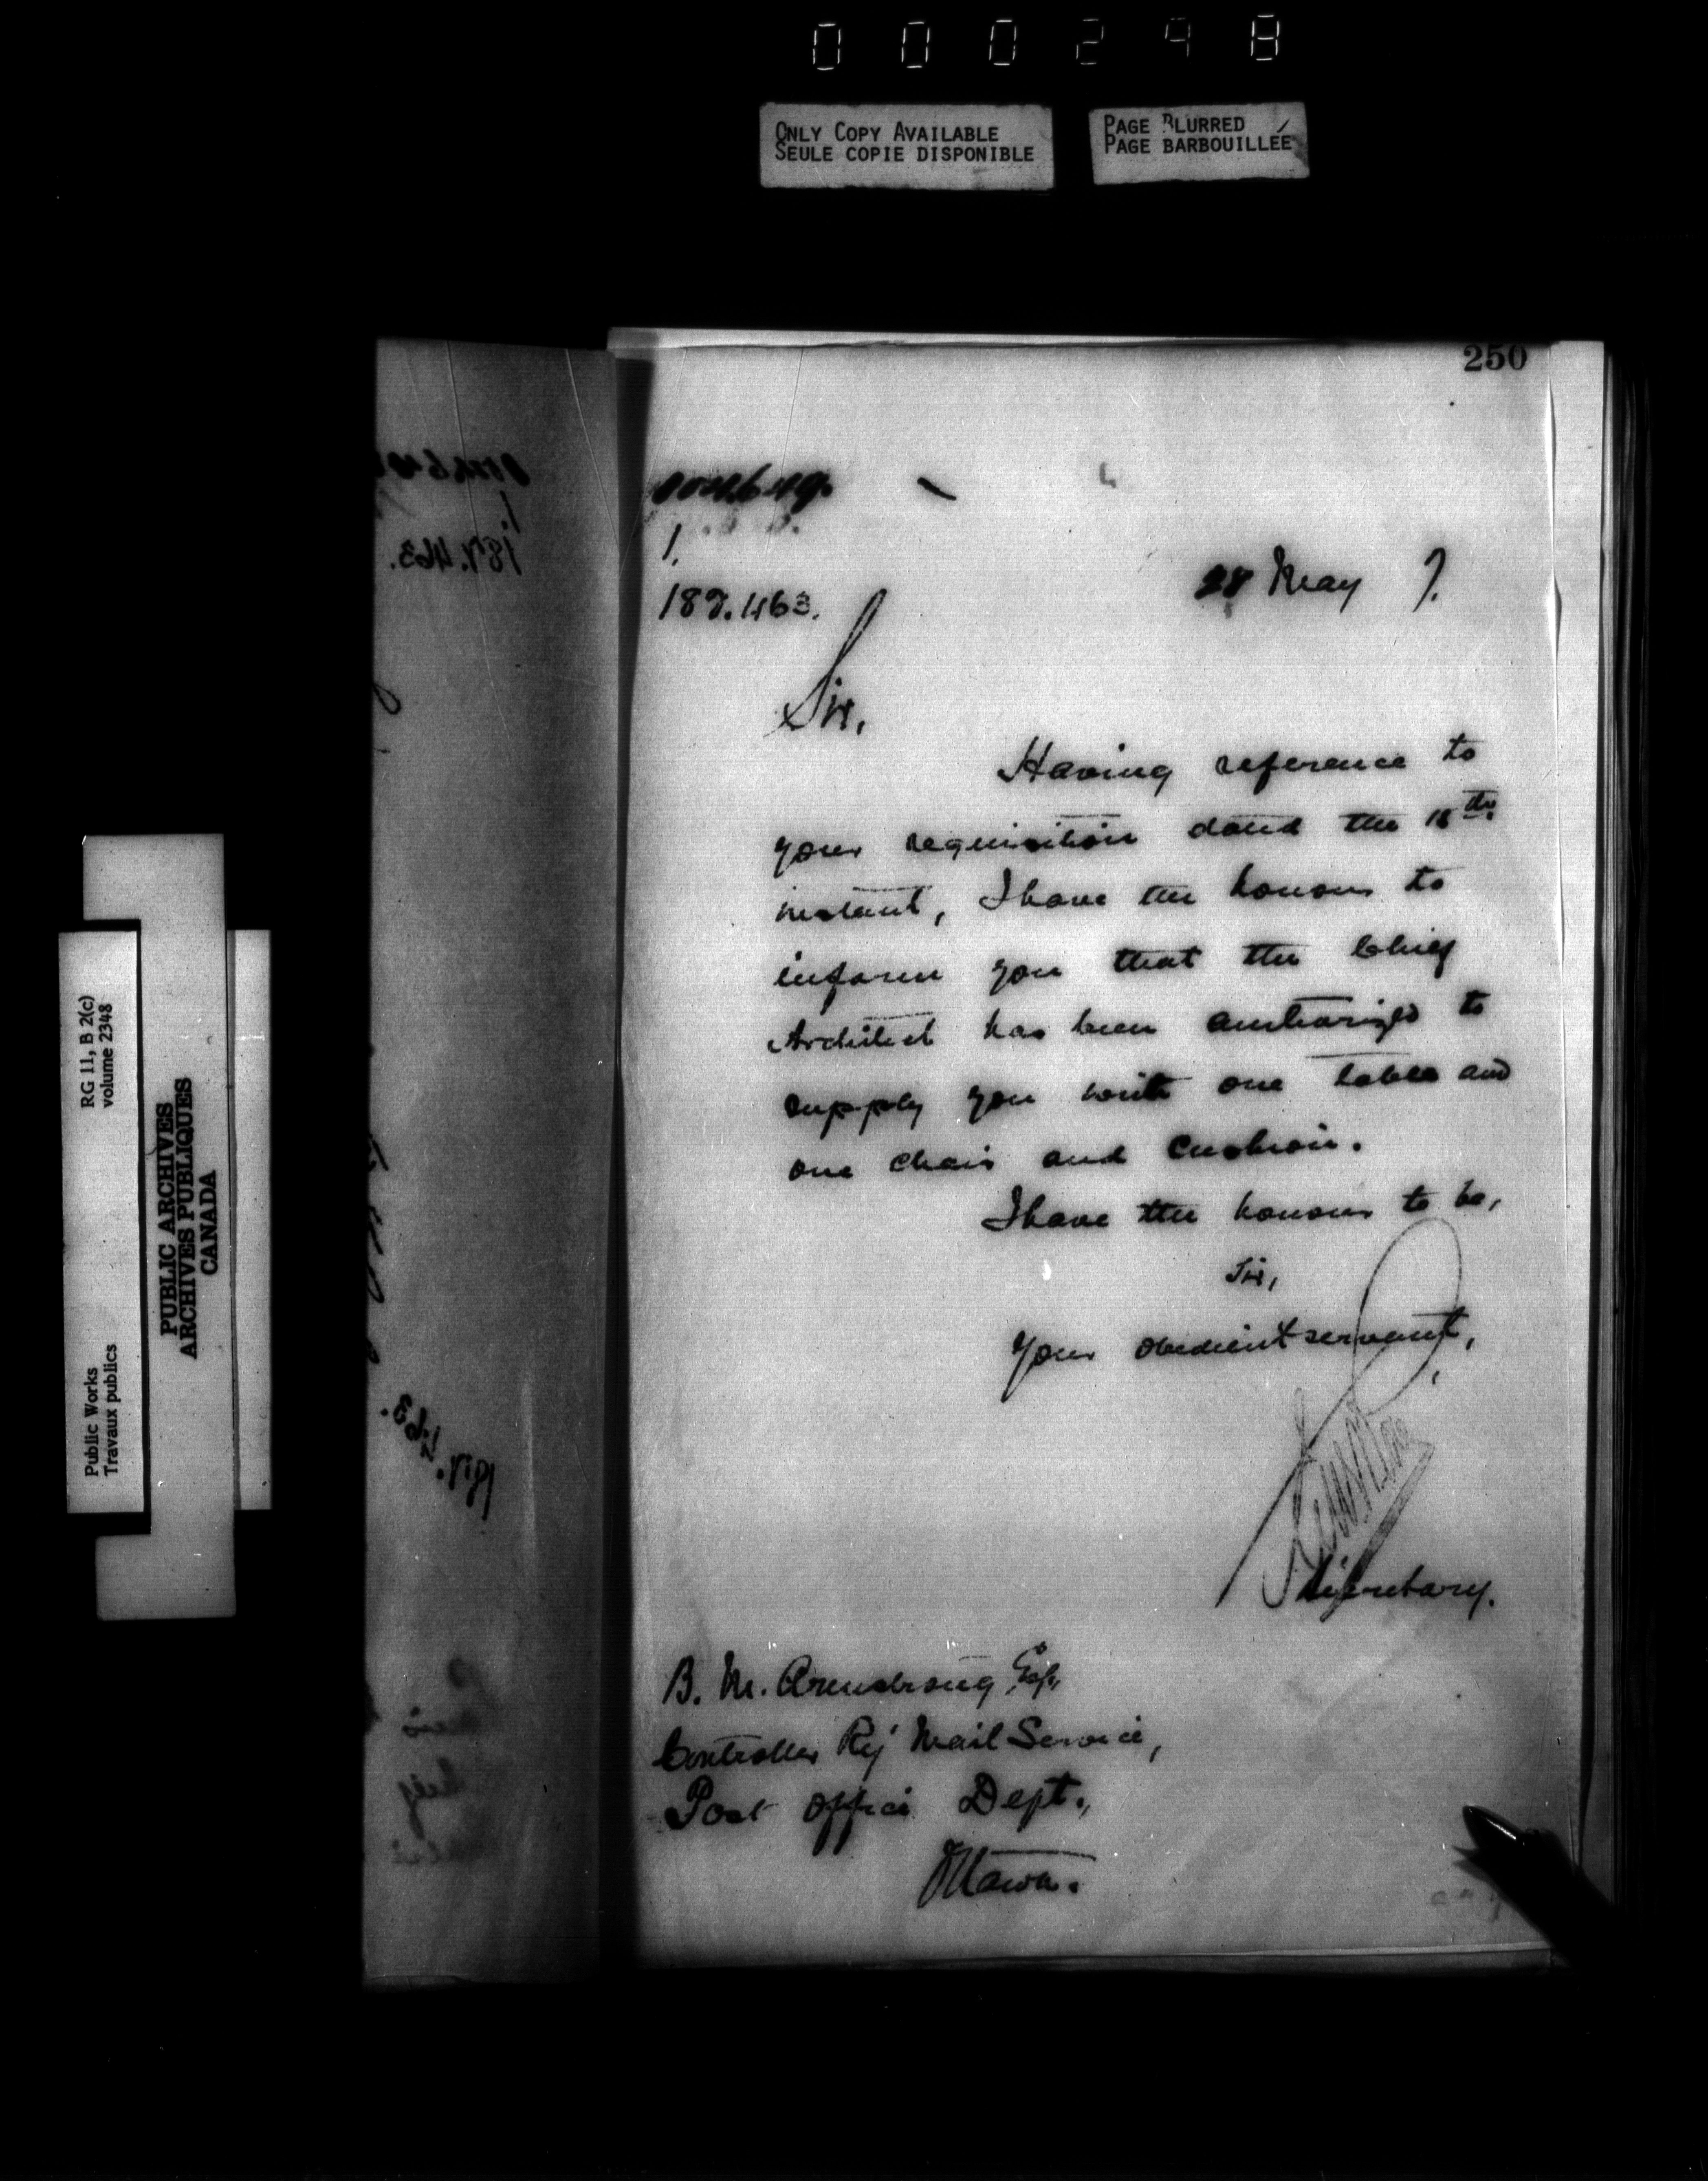 000298
ONLY COPY AVAILABLE
SEULE COPIE DISPONIBLE
PAGE BLURRED
PAGE BARBOUILLÉE
250
1.
187.463.
28 May 7.
Sir,
Having reference to
your requisition dated the 18th
instant, I have the honour to
inform you that the Chief
Architect has been authorized to
supply you with one table and
one chair and cushion.
I have the honour to be,
Sir,
Your obedient servant,
Secretary.
B. M. Armstrong, Esq.,
Controller Ry Mail Service,
Post Office Dept.,
Ottawa.
RG 11, B 2(c)
volume 2348
Public Works
Travaux publics
PUBLIC ARCHIVES
ARCHIVES PUBLIQUES
CANADA